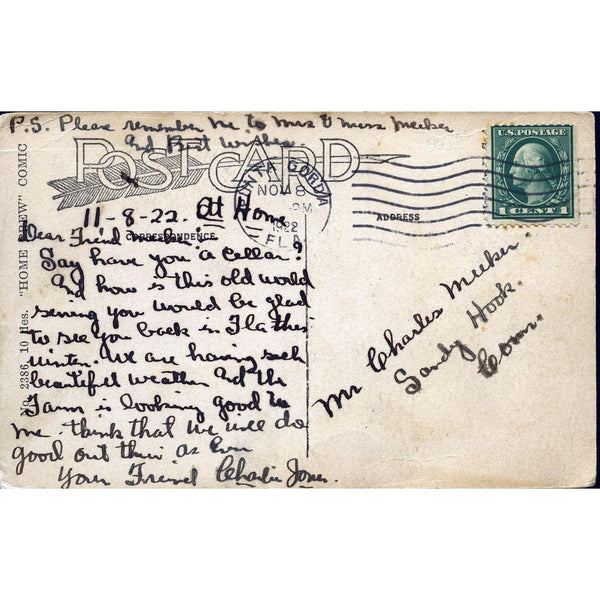 P.S. Please remember me to Mrs & Miss Meeker
And Best Wishes
POST CARD
U.S. POSTAGE
1 CENT 1
PUNTA GORDA
NOV 8
PM
1922
FLA.
ADDRESS
11-8-22. At Home
Dear Friend
CORRESPONDENCE
Say have you a Cellar?
And how is this old world
serving you would be glad
to see you back in Fla this
winter. We are having such
beautiful weather And the
Farm is looking good to
me. think that we will do
good out their as Ever
Your Friend Charlie Jones.
Mr Charles Meeker.
Sandy Hook.
Conn.
No. 2386, 10 des. "HOME BREW" COMIC